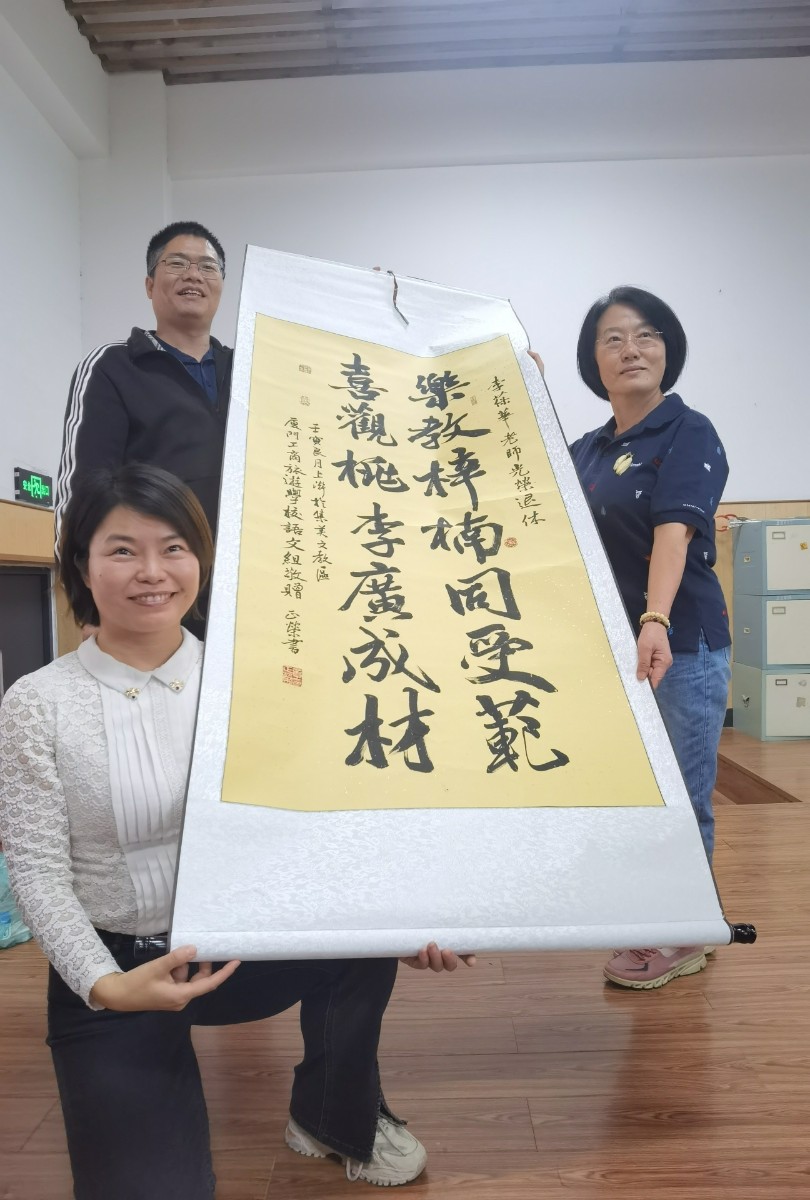 李祿華老師光榮退休
樂教梓楠同受範
喜觀桃李廣成材
壬寅良月上澣於集美文教區
廈門工商旅遊學校語文組敬贈 正榮書